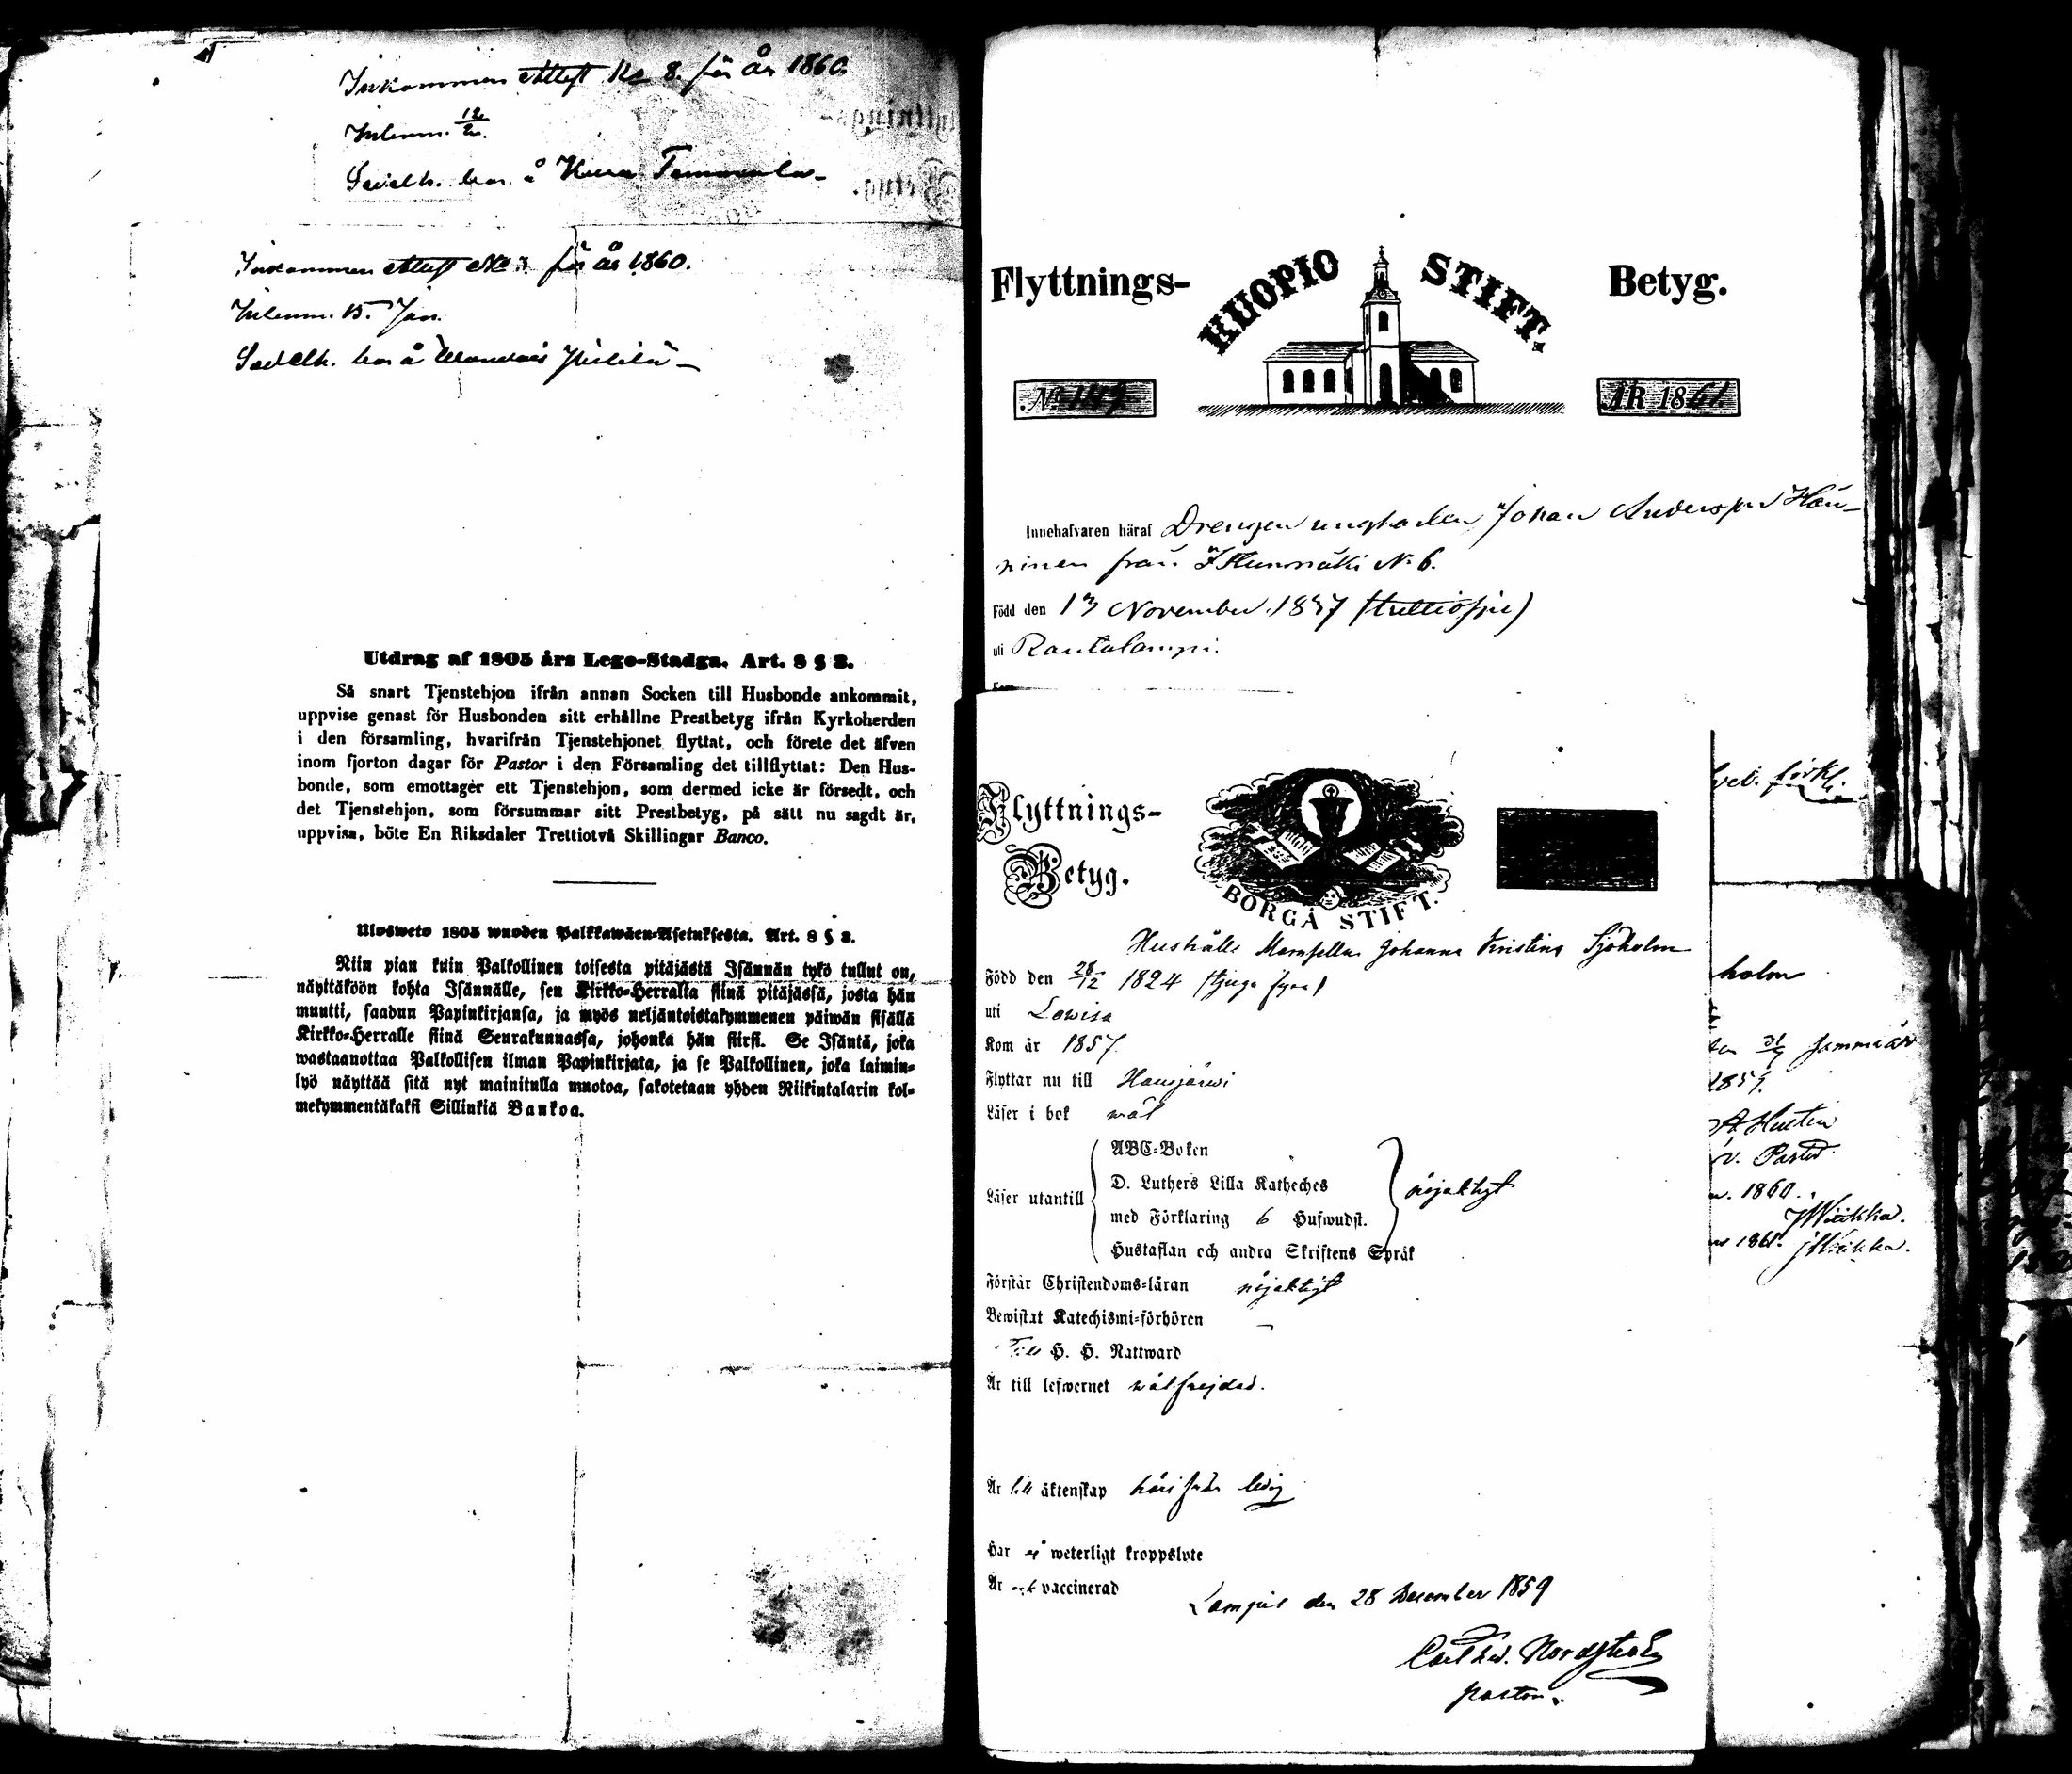 Inkommen attest No 8. för år 1860.
Inlemn. 12/2.
Sedelh. bor å
Inkommen attest No 3 för år 1860.
Inlemn. 15. Jan.
Sedelh. bor å
Utdrag af 1805 års Lego-Stadga. Art. 8 § 3.
Så snart Tjenstehjon ifrån annan Socken till Husbonde ankommit,
uppvise genast för Husbonden sitt erhållne Prestbetyg ifrån Kyrkoherden
i den församling, hvarifrån Tjenstehjonet flyttat, och förete det äfven
inom fjorton dagar för Pastor i den Församling det tillflyttat: Den Hus-
bonde, som emottager ett Tjenstehjon, som dermed icke är försedt, och
det Tjenstehjon, som försummar sitt Prestbetyg, på sätt nu sagdt är,
uppvisa, böte En Riksdaler Trettiotvå Skillingar Banco.
Ulosweto 1805 wuoden Palkkawäen-Asetuksesta. Art. 8 § 3.
Niin pian kuin Palkollinen toisesta pitäjästä Isännän tykö tullut on,
näyttäköön kohta Isännälle, sen Kirkko-Herralta siinä pitäjässä, josta hän
muutti, saadun Papinkirjansa, ja myös neljäntoistakymmenen päiwän sisällä
Kirkko-Herralle siinä Seurakunnassa, johonka hän siirsi. Se Isäntä, joka
wastaanottaa Palkollisen ilman Papinkirjata, ja se Palkollinen, joka laimin-
lyö näyttää sitä nyt mainitulla muotoa, sakotetaan yhden Riikintalarin kol-
mekymmentäkaksi Sillinkiä Bankoa.
Flyttnings- HUOPIO STIFT. Betyg.
No ÅR 1861.
Innehafvaren häraf Drengen ungkarlen Johan Andersson Hän-
ninen från No 6.
Född den 13 November 1837
uti Rautalampi.
Flyttnings-
Betyg.
BORGÅ STIFT.
Hushålls Mamsellen Johanna Kristina Sjöholm
Född den 28/12 1824 (tjugu fyra)
uti Lowisa
Kom år 1857.
Flyttar nu till Hausjärwi
Läser i bok wäl
Läser utantill
ABC-Boken
D. Luthers Lilla Katheches
med Förklaring 6 Hufwudst.
Hustaflan och andra Skriftens Språk
nöjaktigt
Förstår Christendoms-läran nöjaktigt
Bewistat Katechismi-förhören —
H. H. Nattward
Är till lefwernet wälfrejdad.
Är till äktenskap härifrån ledig
Har ej weterligt kroppslyte
Är och vaccinerad
Lampis den 28 December 1859
Carl Nordström
pastor.
holm
1859.
v. Pastor
1860.
J Wiikka.
1861. J Wiikka.